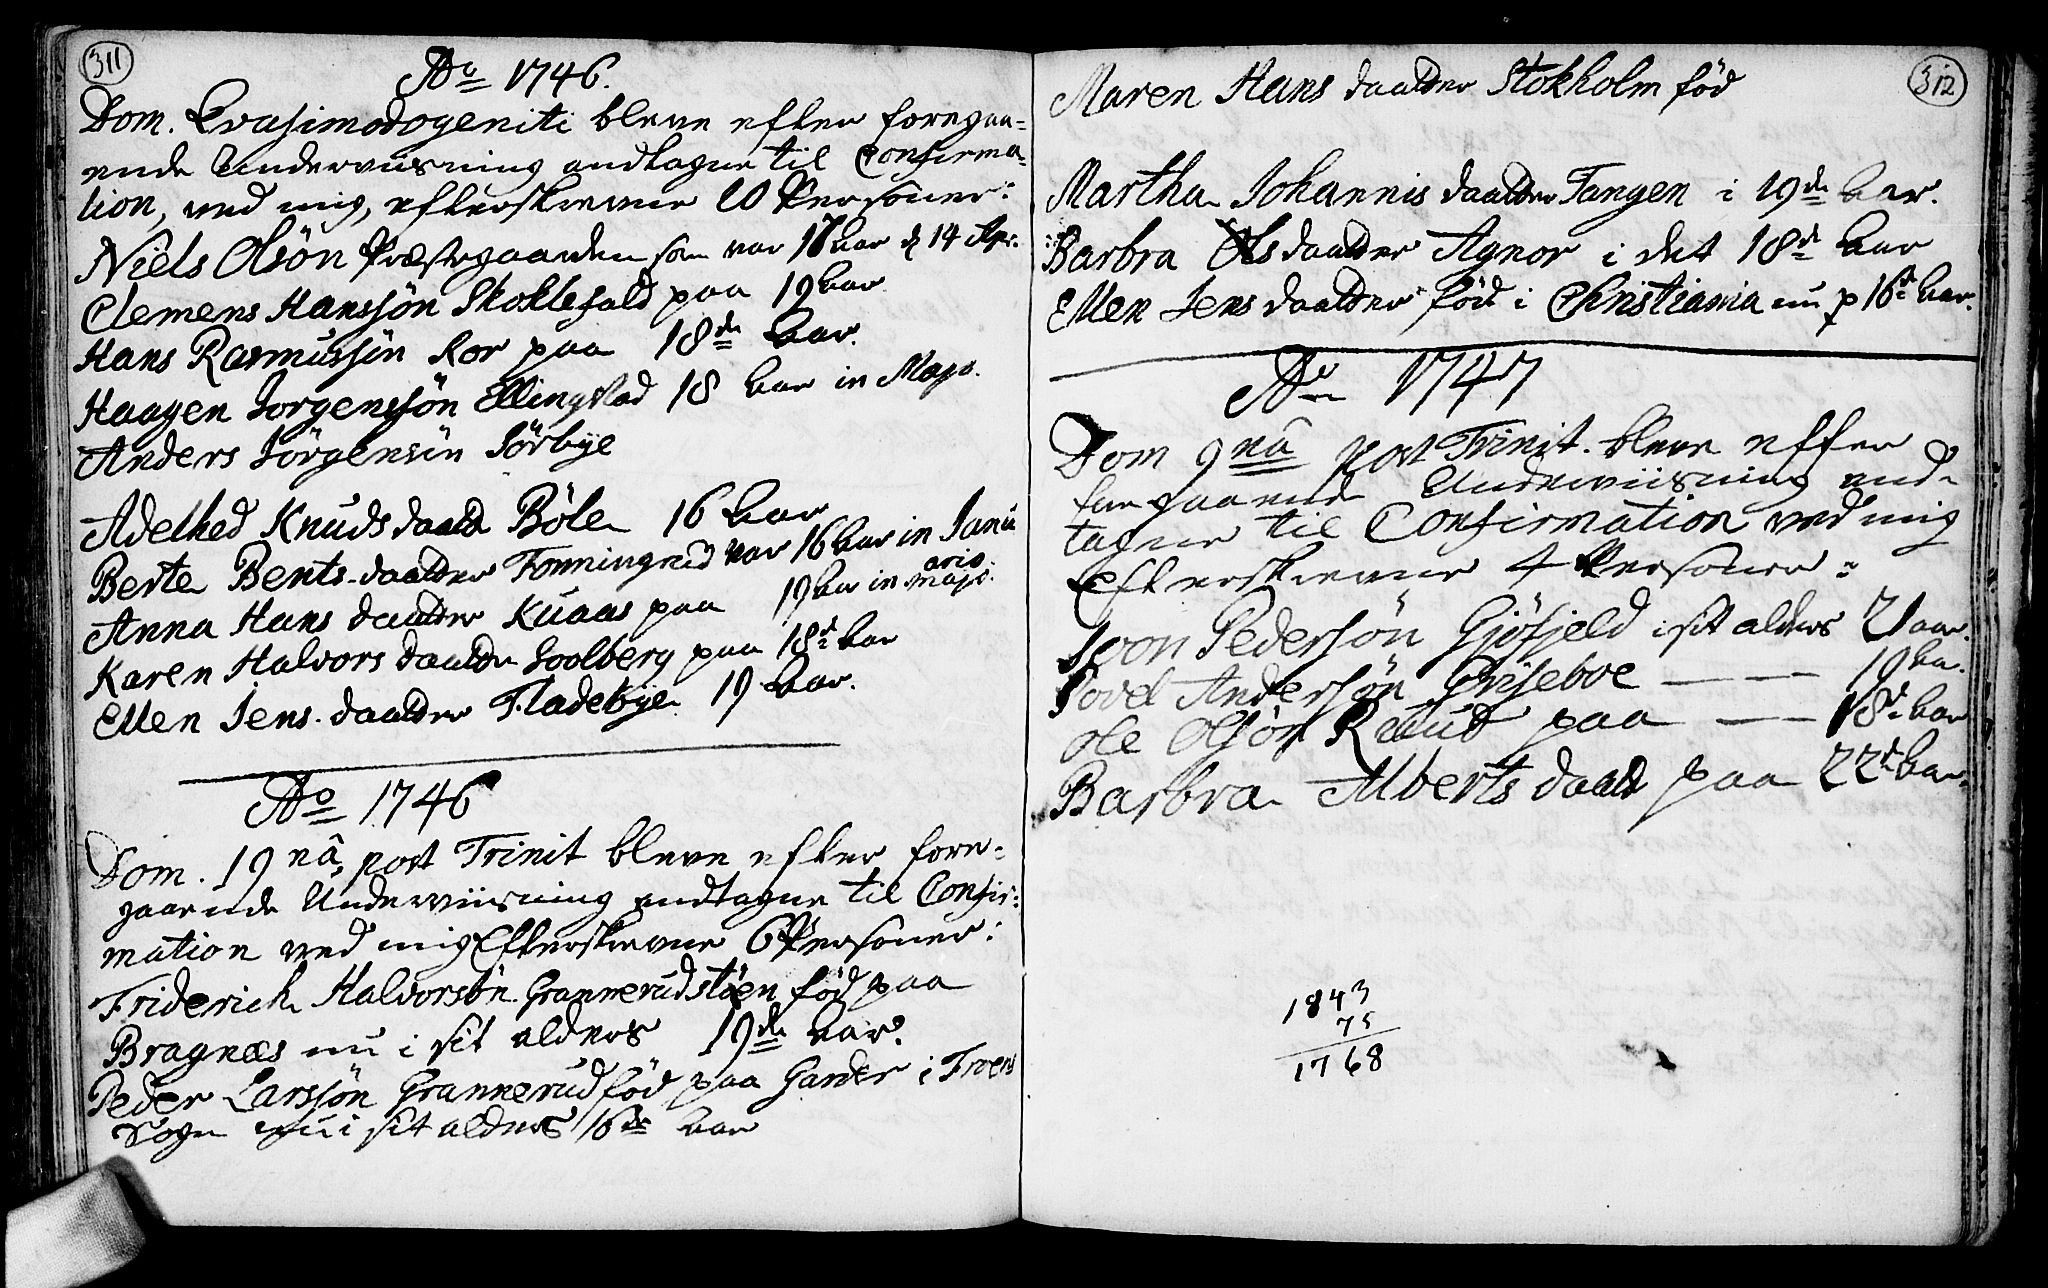 311
Ao 1746.
Dom. Qvasimodogeniti bleve efter foregaa-
ende Underviisning andtagne til Confirma-
tion, ved mig, efterskrevne 10 Personer:
Niels Olsön Præstegaarden som var 17 Aar d 14 Apr.
Clemens Hanssön Skoklefald paa 19 Aar
Hans Rasmussön Ror paa 18de Aar.
Haagen Jorgenssön Ellingstad 18 Aar in Majo.
Anders Jörgensön Sörbye
Adelhed Knuds daatt Böle 16 Aar
Berte Bents-daatter Fonningrud var 16 Aar in Janu
ario
Anna Hans daatter Kuaas paa 19 Aar in Majo.
Karen Halvors daatter Soolberg paa 18d Aar
Ellen Jens-daatter Fladebye 19 Aar.
Ao 1746
Dom. 19nâ post Trinit bleve efter fore-
gaaende Underviisning andtagne til Confir-
mation ved mig Efterskrevne 6 Personer:
Friderich Halvorsön Grannerudstöen föd paa
Bragnæs nu i sit alders 19de Aar.
Peder Larssön Grannerud föd paa Garder i Froens
Sogn nu i sit alders 16de Aar
312
Maren Hans daatter Stokholm föd
Martha Johannis daatter Tangen i 19de Aar.
Barbra Ols daatter Agnor i det 18d Aar
Ellen Jens daatter född i Christiania nu p 16d Aar.
Ao 1747
Dom 9nâ post Trinit. bleve effter
foregaaende Underviisning and-
tagne til Confirmation ved mig
Efterskrevne 4 Personer:
Joon Pedersön Gjöfjeld i sit alders 21 aar.
Povel Andersön Griseboe — — 19 Aar.
Ole Olsön Ruud paa — — 18d Aar
Barbra Alberts daatt paa 22d Aar
1843
75
1768